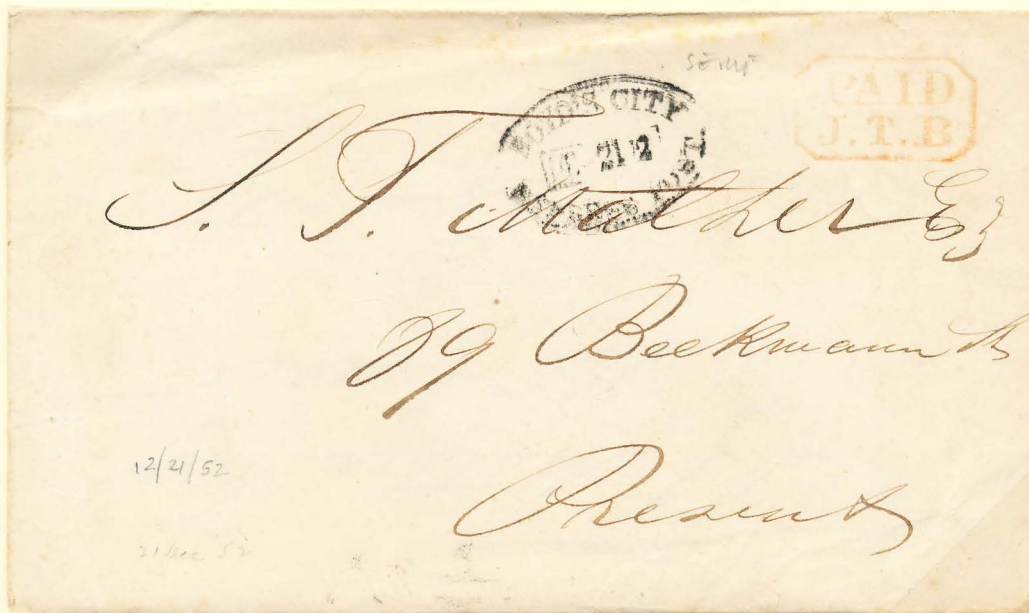 PAID
J.T.B
BOYD'S CITY
21
EXPRESS POST
S. T. Mather Esq
89 Beekmann St
Present
12/21/52
21 Dec '52